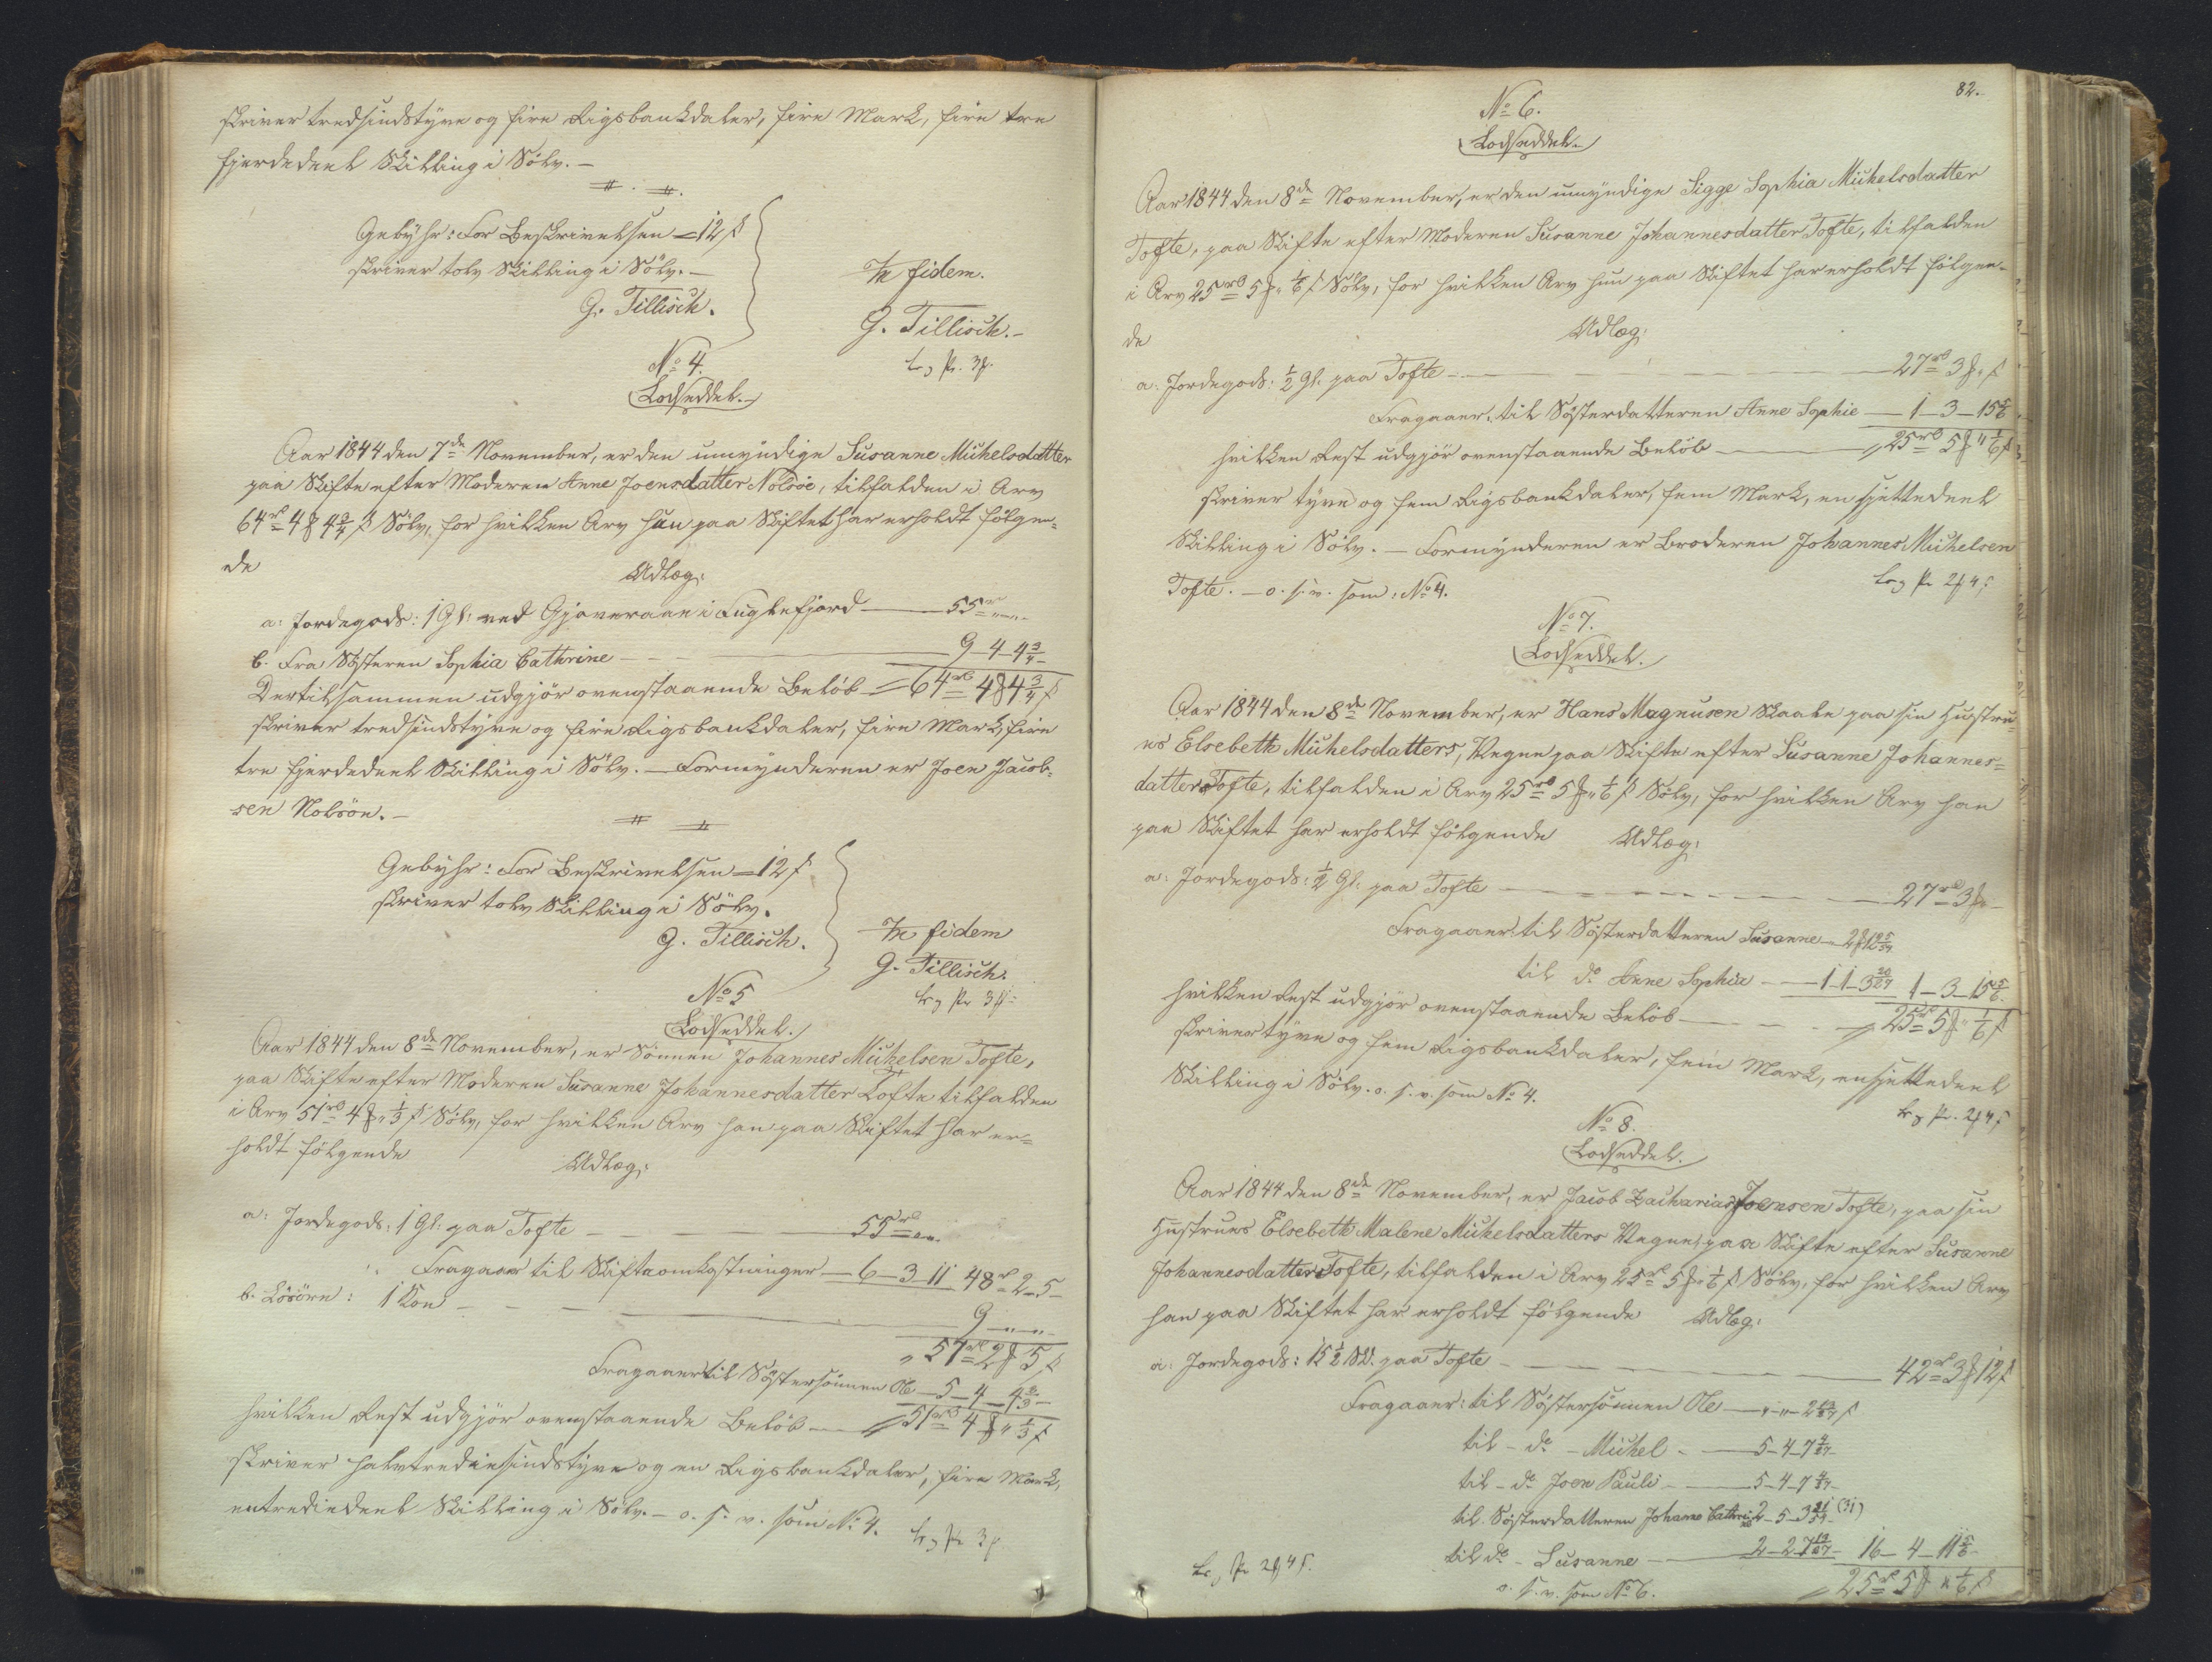 skriver tredsindstyve og fire Rigsbankdaler, fire Mark, fire tre
fjerdedeel Skilling i Sölv. –
Gebyhr: For Beskrivelsen = 12 ß
skriver tolv Skilling i Sölv. –
G. Tillisch.
In fidem.
G. Tillisch. –
No 4.
Lodseddel. –
Aar 1844 den 7de November, er den umyndige Susanne Michelsdatter
paa Skifte efter Moderen Anne Joensdatter Nolsöe, tilfalden i Arv
64 rd 4 ₰ 4 3/4 ß Sölv, for hvilken Arv hun paa Skiftet har erholdt fölgen=
de
Udlæg:
a: Jordegods: 1 Gl: ved Gjaveraane i Fuglefjord — 55 rd „ — „ -
b. Fra Sösteren Sophia Cathrine — 9 – 4 – 4 3/4 –
Dertilsammen udgjör ovenstaaende Belöb = 64 rd 4 ₰ 4 3/4 ß
skriver tredsindstyve og fire Rigsbankdaler, fire Mark, fire
tre fjerdedeel Skilling i Sölv. – Formynderen er Joen Jacob=
sen Nolsöe. –
Gebyhr: For Beskrivelsen = 12 ß
skriver tolv Skilling i Sölv.
G. Tillisch.
In fidem
G. Tillisch.
No 5
Lodseddel.
Aar 1844 den 8de November, er Sönnen Johannes Michelsen Tofte,
paa Skifte efter Moderen Susanne Johannesdatter Tofte tilfalden
i Arv 51 rd 4 ₰ „ 1/3 ß Sölv, for hvilken Arv han paa Skiftet har er=
holdt fölgende
Udlæg:
a: Jordegods: 1 Gl: paa Tofte — 55 rd „ „
Fragaaer til Skifteomkostninger — 6 – 3 – 11 48 rd 2 – 5 –
b. Lösöre: 1 Koe — 9 „ – „ –
„ 57 rd 2 ₰ 5 ß
Fragaaer til Söstersönnen Ole — 5 – 4 – 4 2/3 –
hvilken Rest udgjör ovenstaaende Belöb — 51 rd 4 ₰ „ 1/3 ß
skriver halvtrediesindstyve og en Rigsbankdaler, fire Mark,
entrediedeel Skilling i Sölv. – o. s. v. som No 4.
82.
No 6.
Lodseddel.
Aar 1844 den 8de November, er den umyndige Sigge Sophia Michelsdatter
Tofte, paa Skifte efter Moderen Susanne Johannesdatter Tofte, tilfalden
i Arv 25 rd 5 ₰ „ 1/6 ß Sölv, for hvilken Arv hun paa Skiftet har erholdt fölgen-
de
Udlæg:
a: Jordegods: 1/2 Gl: paa Tofte — 27 rd 3 ₰ „ ß
Fragaaer: til Sösterdatteren Anne Sophie — 1 – 3 – 15 5/6
hvilken Rest udgjör ovenstaaende Belöb — 25 rd 5 ₰ „ 1/6 ß
skriver tyve og fem Rigsbankdaler, fem Mark, en sjettedeel
Skilling i Sölv. – Formynderen er Broderen Johannes Michelsen
Tofte. – o. s. v. som No 4.
No 7.
Lodseddel.
Aar 1844 den 8de November, er Hans Magnusen Skaale paa sin Hustru
es Elsebeth Michelsdatters, Vegne paa Skifte efter Susanne Johannes=
datter Tofte, tilfalden i Arv 25 rd 5 ₰ „ 1/6 ß Sölv, for hvilken Arv han
paa Skiftet har erholdt fölgende Udlæg:
a: Jordegods: 1/2 Gl. paa Tofte — 27 rd 3 ₰ –
Fragaaer: til Sösterdatteren Susanne –
til do Anne Sophia — 1 – 3 – 15 5/6
hvilken Rest udgjör ovenstaaende Belöb — 25 rd 5 ₰ „ 1/6 ß
skriver tyve og fem Rigsbankdaler, fem Mark, en sjettedeel
Skilling i Sölv. o. s. v. som No 4.
No 8.
Lodseddel.
Aar 1844 den 8de November, er Jacob Zacharias Joensen Tofte, paa sin
Hustrues Elsebeth Malene Michelsdatters Vegne, paa Skifte efter Susanne
Johannesdatter Tofte, tilfalden i Arv 25 rd 5 ₰ „ 1/6 ß Sölv, for hvilken Arv
han paa Skiftet har erholdt fölgende Udlæg:
a: Jordegods: 15 1/2 Sk. paa Tofte — 42 rd 3 ₰ 12 ß
Fragaaer: til Söstersönnen Ole —
til – do – Michel – 5 – 4 – 7
til – do Joen Pauli – 5 – 4 – 7
til Sösterdatteren Johanne Cathrine 2 – 5 – 3 (31)
til do – Susanne — 2 – 2 – 7 16 – 4 – 11 5/6
o. s. v. som No 6. 25 rd 5 ₰ „ 1/6 ß